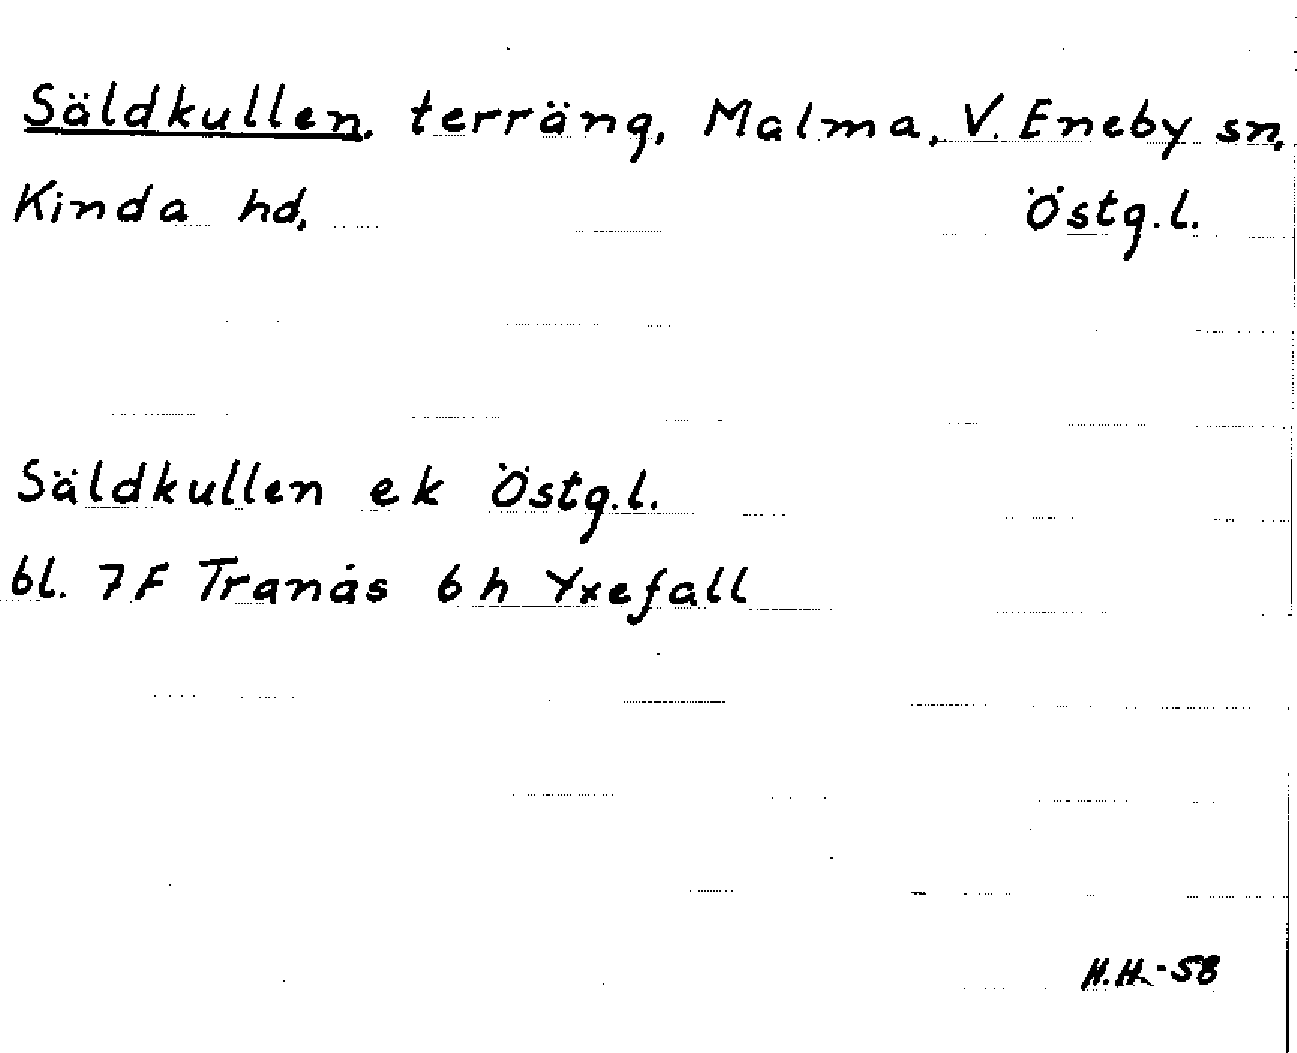 Säldkullen, terräng, Malma, V. Eneby sn,
Kinda hd, Östg.l.
Säldkullen ek Östg.l.
bl. 7F Tranås 6h Yxefall
H.H.-58